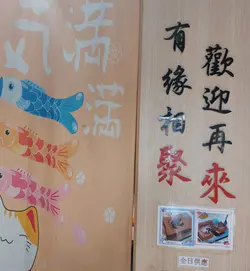 滿滿
有緣相聚
歡迎再來
全日供應